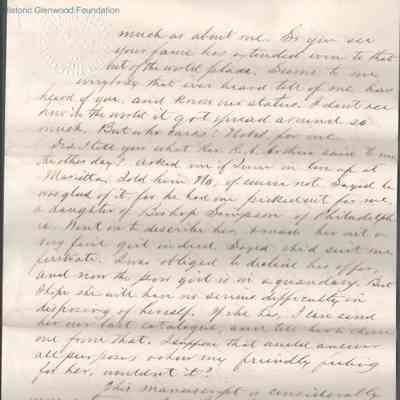 Historic Glenwood Foundation
much as about me. So you see
your fame has extended even to that
out of the world place. Seems to me
everybody that ever heard tell of me have
heard of you, and know our status. I don't see
how in the world it got spread around so
much. But who cares? Not I, for one.
Did I tell you what Rev. R. L. said to me
the other day? Asked me if I was in love up at
Marietta. Told him No, of course not. Said he
was glad of it, for he had one picked out for me,
a daughter of Bishop Simpson of Philadelph
ia. Went on to describe her, & made her out a
very fair girl indeed. Said she'd suit me
first rate. I was obliged to decline his offer,
and now the poor girl is in a quandary. But
I hope she will have no serious difficulty in
disposing of herself. If she has, I can send
her our last catalogue, and let her choose
one from that. I suppose that would answer
all purposes & show my friendly feeling
for her, wouldn't it?
This manuscript is considerably